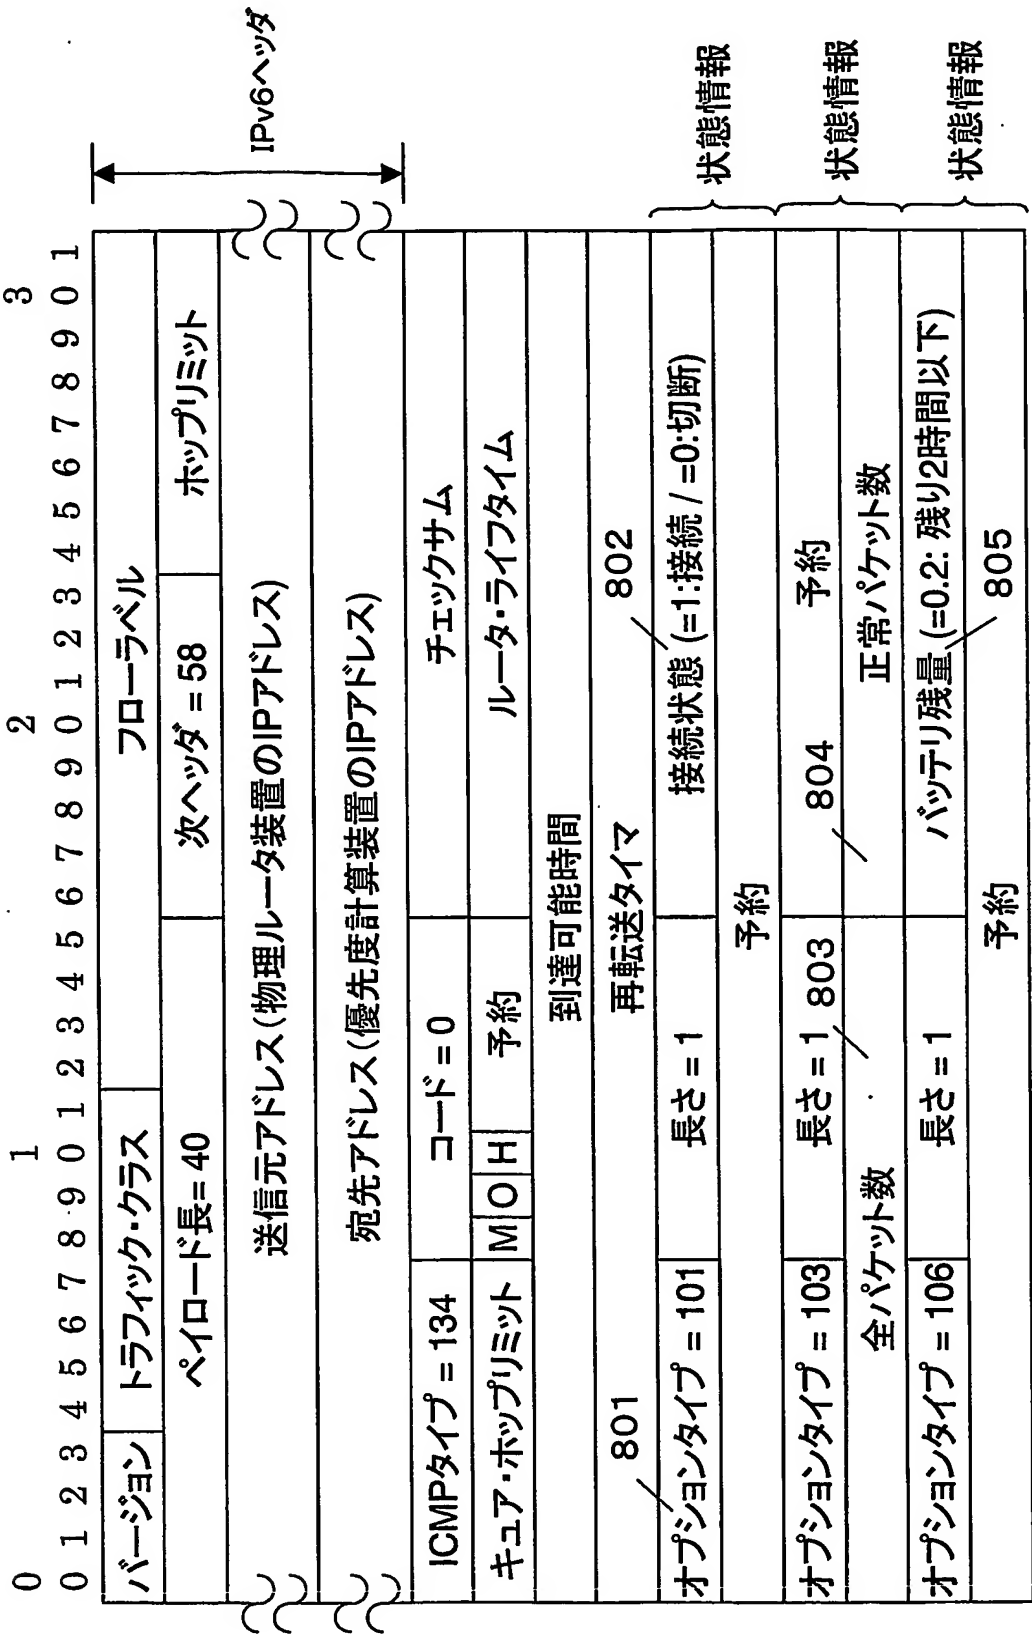 0 1 2 3
0 1 2 3 4 5 6 7 8 9 0 1 2 3 4 5 6 7 8 9 0 1 2 3 4 5 6 7 8 9 0 1
バージョン トラフィック・クラス フローラベル
ペイロード長= 40 次ヘッダ = 58 ホップリミット
IPv6ヘッダ
送信元アドレス(物理ルータ装置のIPアドレス)
宛先アドレス(優先度計算装置のIPアドレス)
ICMPタイプ = 134 コード = 0 チェックサム
キュア・ホップリミット M O H 予約 ルータ・ライフタイム
到達可能時間
801 再転送タイマ 802
オプションタイプ = 101 長さ = 1 接続状態 (=1:接続 / =0:切断) 状態情報
予約
オプションタイプ = 103 長さ = 1 803 804 予約 状態情報
全パケット数 正常パケット数
オプションタイプ = 106 長さ = 1 バッテリ残量 (=0.2: 残り2時間以下) 状態情報
予約 805